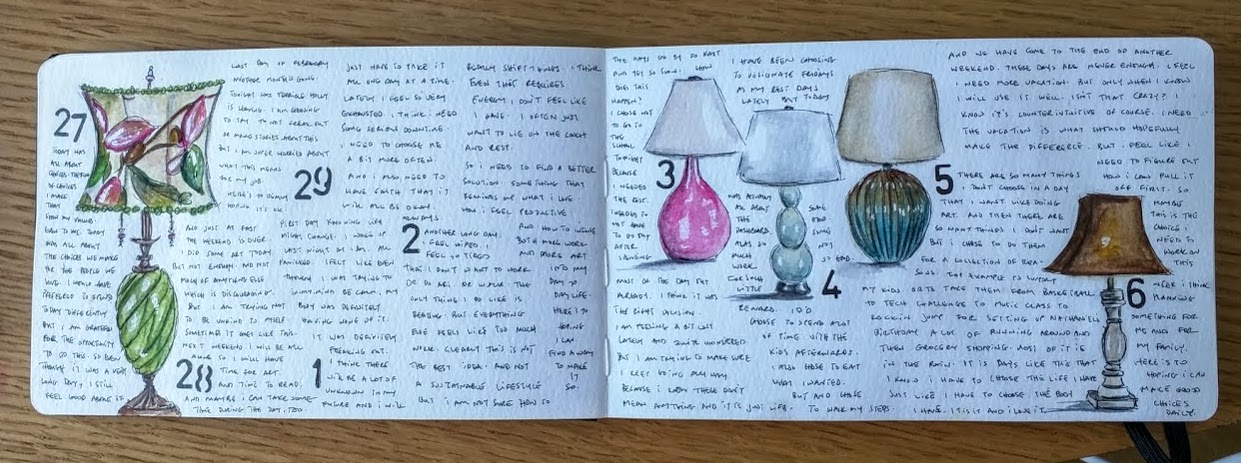 27
TODAY WAS
ALL ABOUT
CHOICES. THE
OF CHOICES
I MAKE
THAT
HOW MY VALUES
EVEN TO ME. TODAY
WAS ALL ABOUT
THE CHOICES WE MAKE
FOR THE PEOPLE WE
LOVE. I WOULD HAVE
PREFERRED TO SPEND
TODAY DIFFERENTLY
BUT I AM GRATEFUL
FOR THE OPPORTUNITY
TO DO THIS. SO EVEN
THOUGH IT WAS A VERY
LONG DAY, I STILL
FEEL GOOD ABOUT IT.
28
AND JUST AS FAST
THE WEEKEND IS OVER.
I DID SOME ART TODAY
BUT NOT ENOUGH. DID NOT
MUCH OF ANYTHING ELSE
WHICH IS DISCOURAGING.
BUT I AM TRYING NOT
TO BE UNKIND TO MYSELF
SOMETIMES IT GOES LIKE THIS.
NEXT WEEKEND I WILL BE ALL
ALONE SO I WILL HAVE
TIME FOR ART.
AND TIME TO READ.
AND MAYBE I CAN TAKE SOME
TIME DURING THE DAY, TOO.
29
LAST DAY OF FEBRUARY
ANOTHER MONTH GONE.
TONIGHT WAS TERRIBLE.
IS LEAVING. I AM
TO SAY TO NOT FREAK OUT
OR MAKE STORIES ABOUT THIS
BUT I AM SUPER WORRIED ABOUT
WHAT THIS MEANS
FOR MY JOB.
HERE'S TO REALLY
HOPING IT'S OK.
1
FIRST DAY KNOWING LIFE
MIGHT CHANGE. I WOKE UP
LAST NIGHT AT 1 AM ALL
PANICKED. I FELT LIKE EVEN
THOUGH I WAS TRYING TO
BE CALM, MY
BODY WAS DEFINITELY
HAVING NONE OF IT.
IT WAS DEFINITELY
FREAKING OUT.
I THINK THERE
WILL BE A LOT OF
UNKNOWN IN MY
FUTURE AND I WILL
JUST HAVE TO TAKE IT
ALL ONE DAY AT A TIME.
LATELY I FEEL SO VERY
EXHAUSTED. I THINK I NEED
SOME SERIOUS DOWNTIME.
I NEED TO CHOOSE ME
A BIT MORE OFTEN.
AND I ALSO NEED TO
HAVE FAITH THAT IT
WILL ALL BE OKAY
ALWAYS.
2
ANOTHER LONG DAY.
I FEEL WIPED. I
FEEL SO TIRED
THAT I DON'T WANT TO WORK
OR DO ART. OR WALK. THE
ONLY THING I DO LIKE IS
READING. BUT EVERYTHING
ELSE FEELS LIKE TOO MUCH
WORK. CLEARLY THIS IS NOT
THE BEST IDEA. AND NOT
A SUSTAINABLE LIFESTYLE
BUT I AM NOT SURE HOW TO
REALLY SHIFT THINGS. I THINK
EVEN THAT REQUIRES
ENERGY I DON'T FEEL LIKE
I HAVE. I OFTEN JUST
WANT TO LIE ON THE COUCH
AND REST.
SO I NEED TO FIND A BETTER
SOLUTION. SOMETHING THAT
REMINDS ME WHAT I LIKE
HOW I FEEL PRODUCTIVE
AND HOW TO WEAVE
BOTH MORE WORK
AND MORE ART
INTO MY
DAY TO
DAY LIFE.
HERE'S TO
HOPING
I CAN
FIND A WAY
TO MAKE
IT
SO.
3
THE DAYS GO BY SO FAST
AND YET SO SLOW. HOW
DOES THIS
HAPPEN?
I CHOSE NOT
TO GO TO
THE
SCHOOL
TONIGHT
BECAUSE
I NEEDED
THE REST.
TO DO SO
AFTER
SPENDING
MOST OF THE DAY OUT
ALREADY. I THINK IT WAS
THE RIGHT DECISION.
I AM FEELING A BIT LOST
LATELY AND QUITE UNINSPIRED
BUT I AM TRYING TO MAKE SURE
I KEEP GOING ANYHOW
BECAUSE I KNOW THESE DON'T
MEAN ANYTHING AND IT IS JUST LIFE.
4
I HAVE BEEN CHOOSING
TO DESIGNATE FRIDAYS
AS MY REST DAYS
LATELY BUT TODAY
WAS
ALL ABOUT
THE
DASHBOARD.
ALAS SO
MUCH
WORK
FOR SUCH
LITTLE
REWARD. I DID
SOME
FINE,
SOME
NOT
SO GOOD.
CHOOSE TO SPEND A LOT
OF TIME WITH THE
KIDS AFTERWARDS.
I ALSO CHOSE TO EAT
WHAT I WANTED.
BUT AND CHOSE
TO WALK MY STEPS.
5
THERE ARE SO MANY THINGS
I DON'T CHOOSE IN A DAY
THAT I WANT LIKE DOING
ART. AND THEN THERE ARE
SO MANY THINGS I DON'T WANT
BUT I CHOSE TO DO THEM
FOR A COLLECTION OF REA-
SONS. FOR EXAMPLE TO SUPPORT
MY KIDS. OR TO TAKE THEM FROM BASKETBALL
TO TECH CHALLENGE TO MUSIC CLASS TO
ROCKIN JUMP FOR SETTING UP NATHANIEL'S
BIRTHDAY. A LOT OF RUNNING AROUND AND
THEN GROCERY SHOPPING. MOST OF IT IS
IN THE RAIN. IT IS DAYS LIKE THIS THAT
I KNOW I HAVE TO CHOOSE THE LIFE I HAVE
JUST LIKE I HAVE TO CHOOSE THE BODY
I HAVE. IT IS IT AND I LOVE IT.
6
AND WE HAVE COME TO THE END OF ANOTHER
WEEKEND. THESE DAYS ARE NEVER ENOUGH. I FEEL
I NEED MORE VACATION. BUT ONLY WHEN I KNOW
I WILL USE IT WELL. ISN'T THAT CRAZY? I
KNOW IT'S COUNTERINTUITIVE OF COURSE. I NEED
THE VACATION IS WHAT SHOULD HOPEFULLY
MAKE THE DIFFERENCE. BUT I FEEL LIKE I
NEED TO FIGURE OUT
HOW I CAN PULL IT
OFF FIRST. SO
MAYBE
THIS IS THE
CHOICE I
NEED TO
WORK ON
THIS
WEEK. I THINK
PLANNING
SOMETHING FOR
ME AND FOR
MY FAMILY.
HERE IS TO
HOPING I CAN
MAKE GOOD
CHOICES
DAILY.